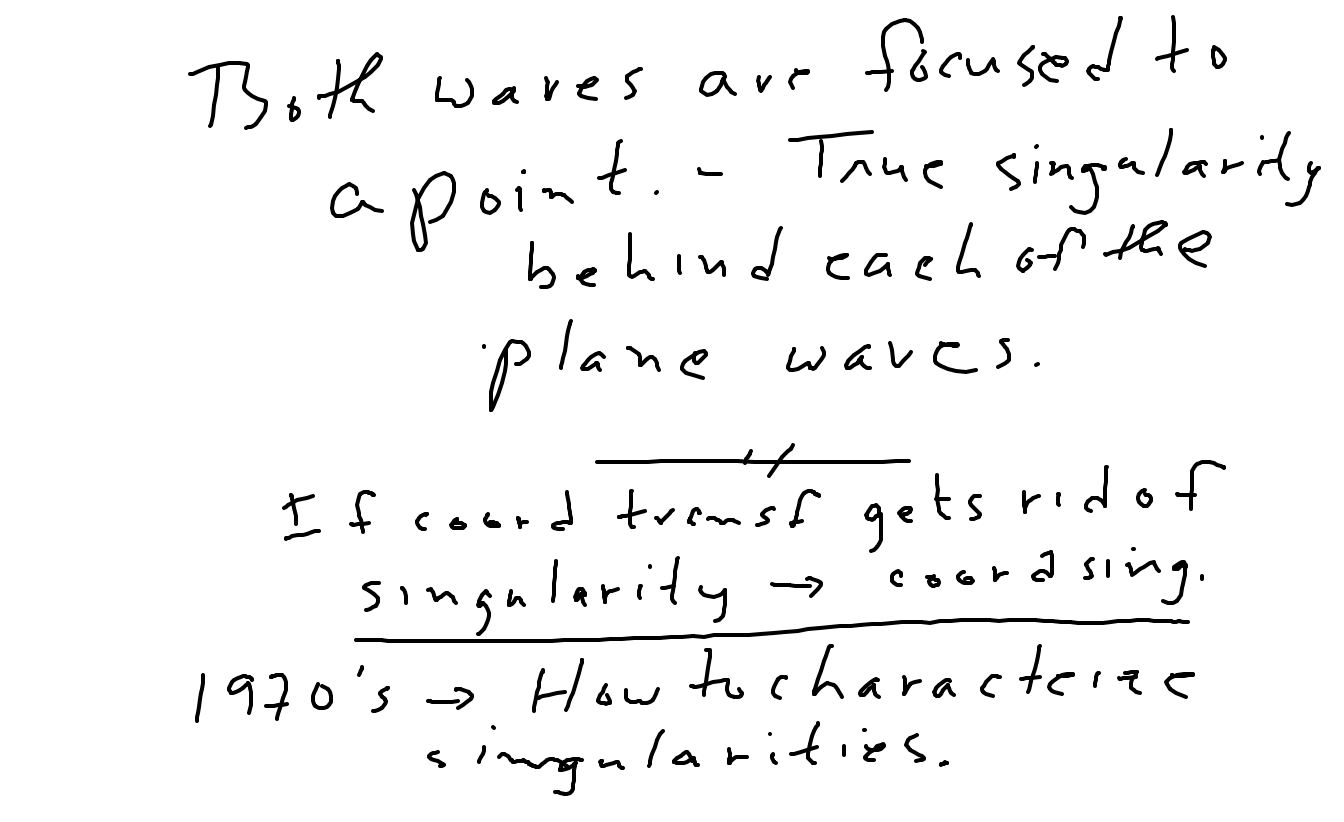 Both waves are focused to
a point. - True singularity
behind each of the
plane waves.
If coord transf gets rid of
singularity → coord sing.
1970's → How to characterize
singularities.